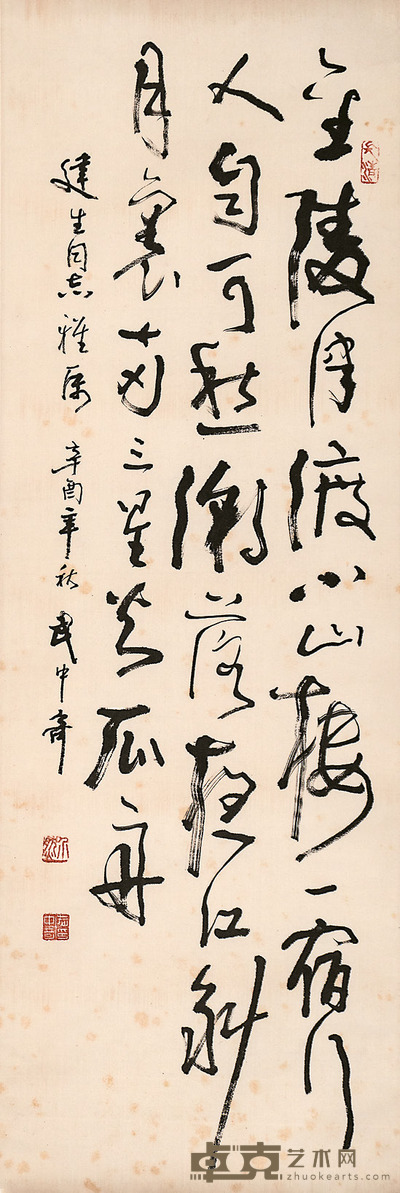 金陵津渡小山楼一宿行
人自可愁潮落夜江斜
月裏两三星火是瓜舟
建生同志雅属 辛酉年秋 武中奇
卓克艺术网
zhuokearts.com